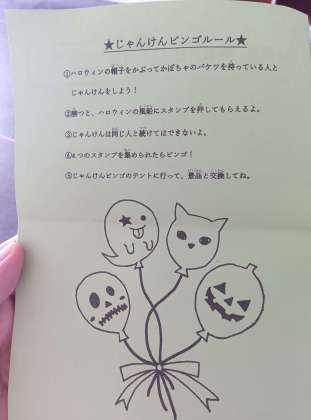 ★じゃんけんビンゴルール★
①ハロウィンの帽子をかぶってかぼちゃのバケツを持っている人と
じゃんけんをしよう！
②勝つと、ハロウィンの風船にスタンプを押してもらえるよ。
③じゃんけんは同じ人と続けてはできないよ。
④4つのスタンプを集められたらビンゴ！
⑤じゃんけんビンゴのテントに行って、景品と交換してね。